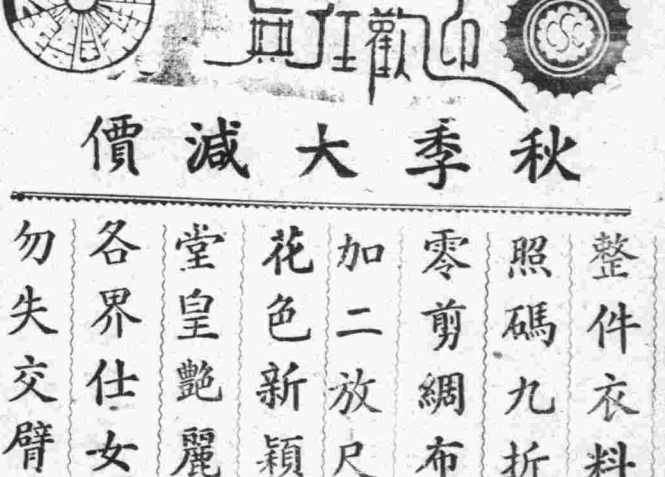 歡
CSC
秋季大減價
整件衣料
照碼九折
零剪綢布
加二放尺
花色新穎
堂皇艷麗
各界仕女
勿失交臂